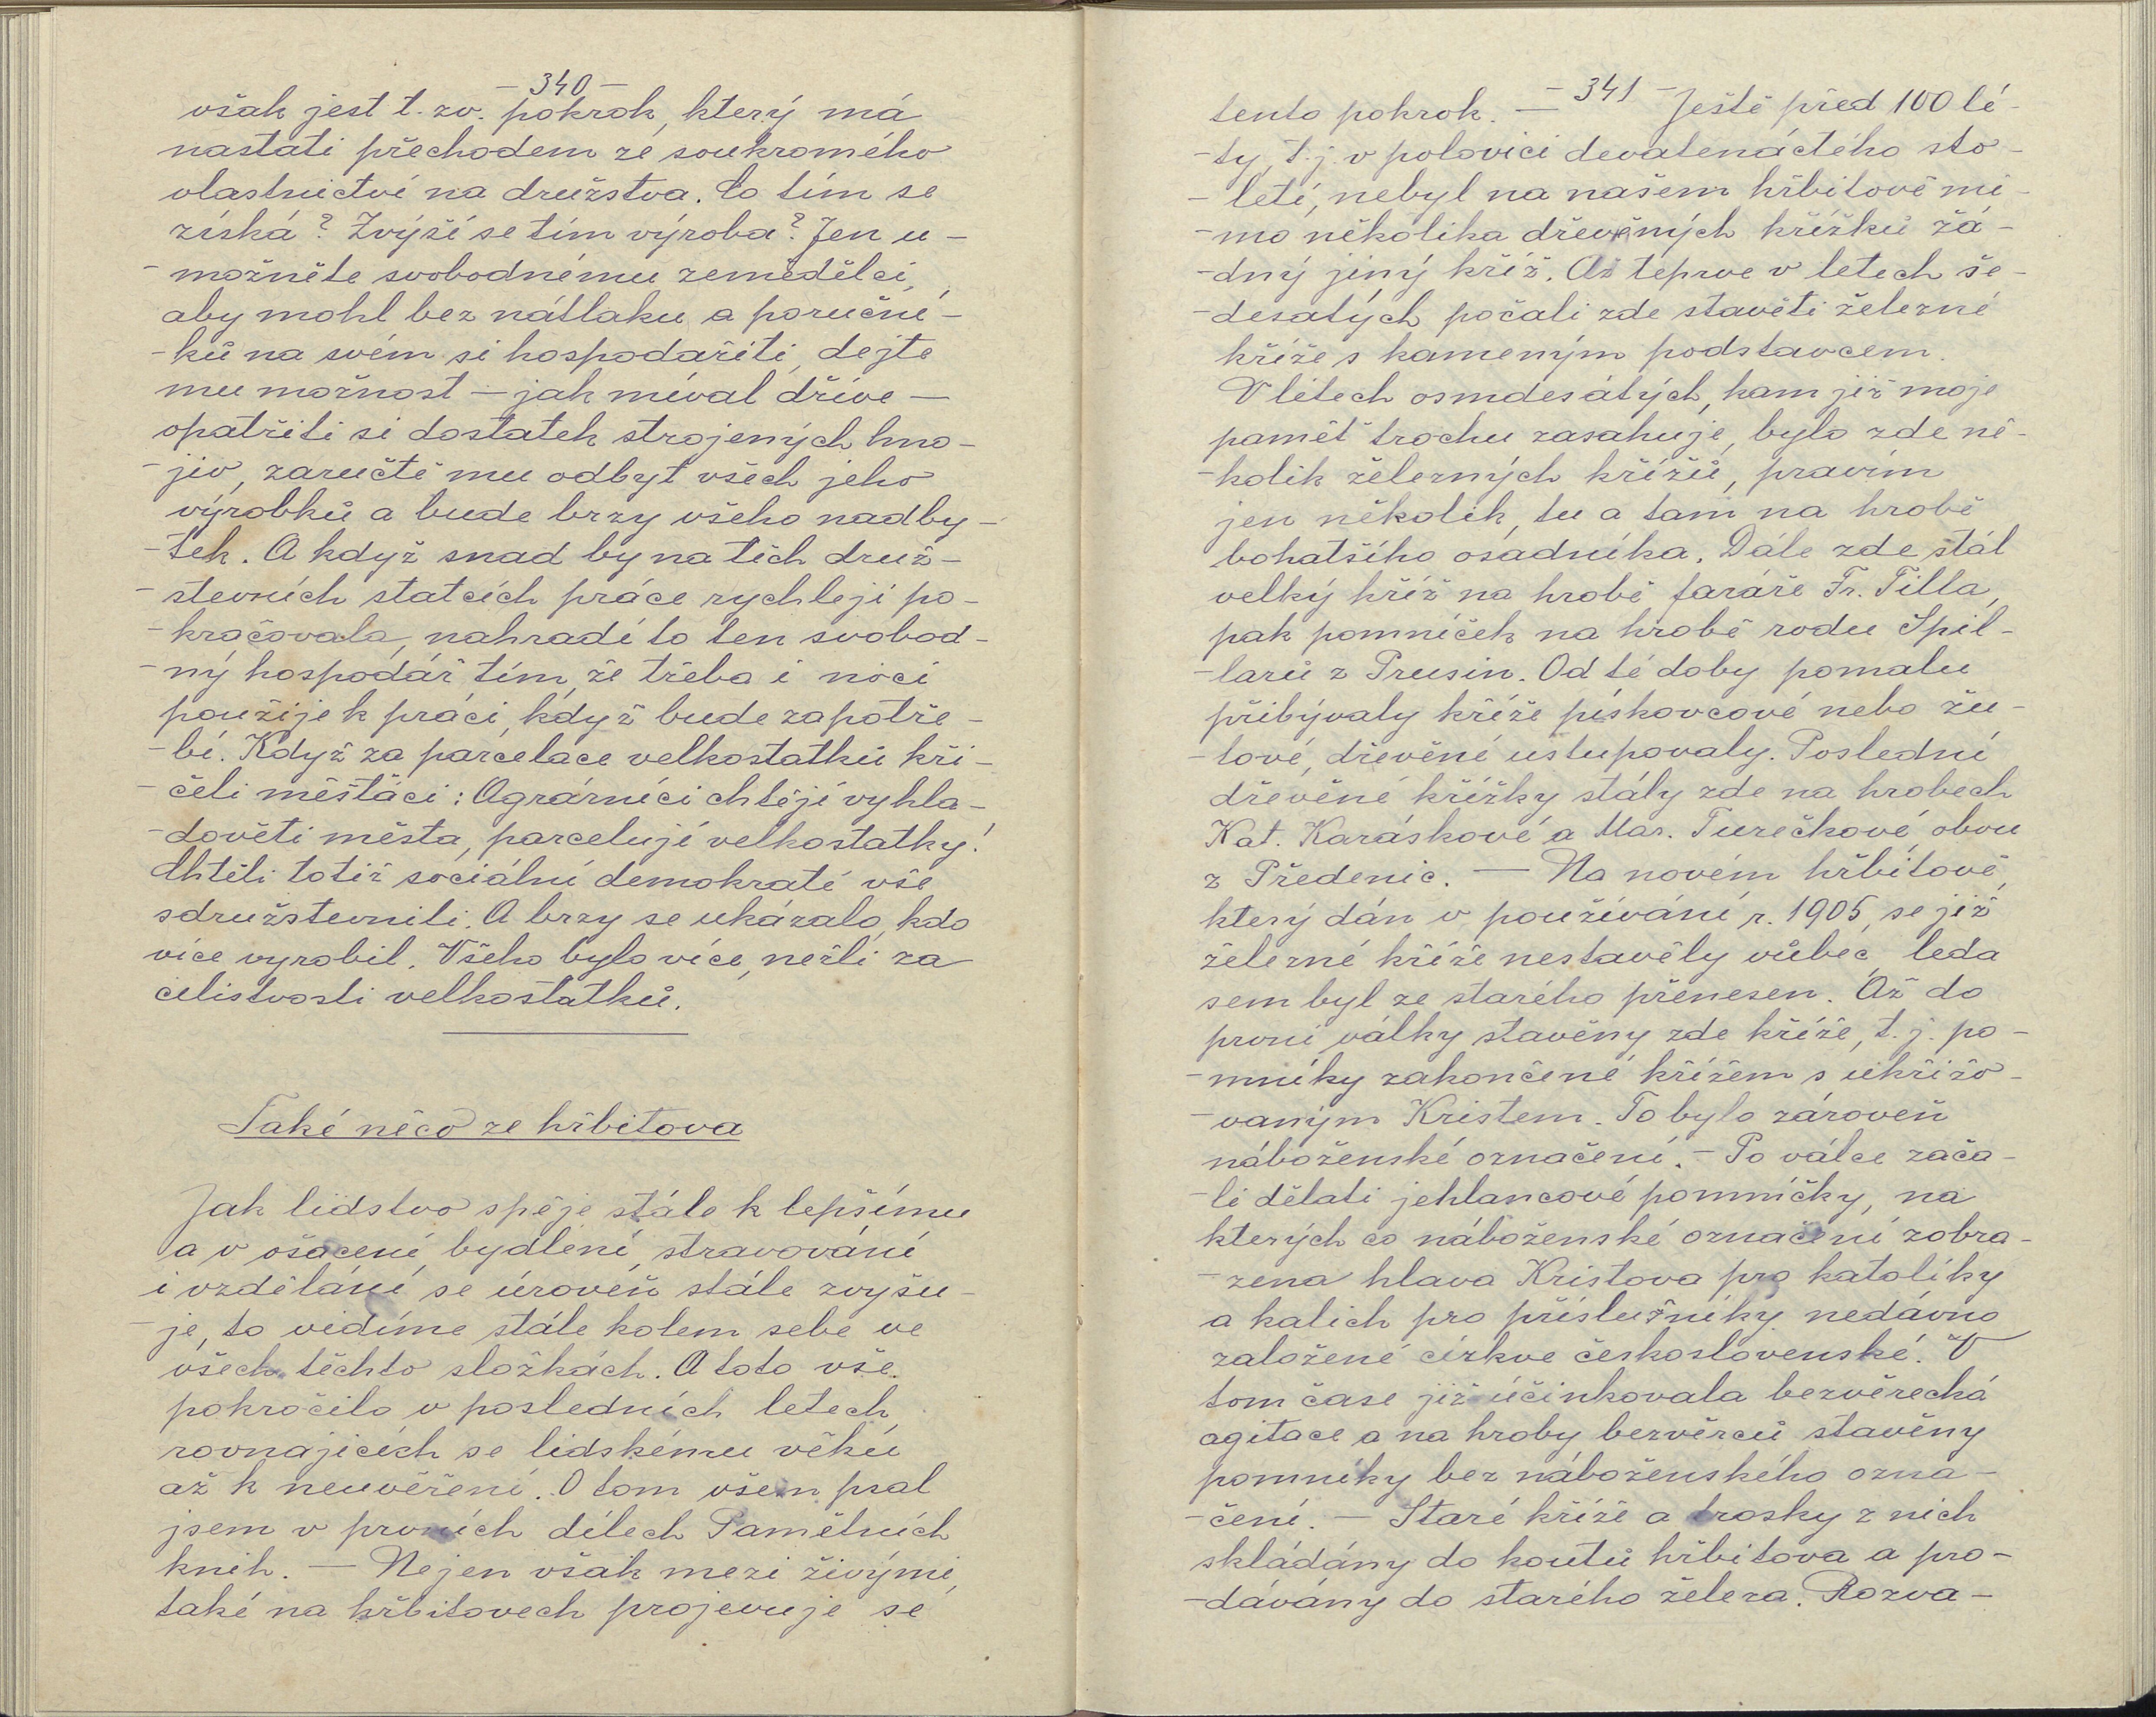 - 340 -
však jest t. zv. pokrok, který má
nastati přechodem ze soukromého
vlastnictví na družstva. Co tím se
získá? Zvýší se tím výroba? Jen u-
-možněte svobodnému zemědělci,
aby mohl bez nátlaku a poruční-
-ků na svém si hospodařiti, dejte
mu možnost — jak míval dříve —
opatřiti si dostatek strojených hno-
-jiv, zaručte mu odbyt všech jeho
výrobků a bude brzy všeho nadby-
-tek. A když snad by na těch druž-
-stevních statcích práce rychleji po-
-kračovala, nahradí to ten svobod-
-ný hospodář tím, že třeba i noci
použije k práci, když bude zapotře-
-bí. Když za parcelace velkostatků kři-
-čeli měšťáci: Agrárníci chtějí vyhla-
-dověti města, parcelují velkostatky!
Chtěli totiž sociální demokraté vše
sdružstevniti. A brzy se ukázalo, kdo
více vyrobil. Všeho bylo více, nežli za
celistvosti velkostatků.
Také něco ze hřbitova
Jak lidstvo spěje stále k lepšímu
a v ošacení, bydlení, stravování
i vzdělání se úroveň stále zvyšu-
-je, to vidíme stále kolem sebe ve
všech těchto složkách. A toto vše
pokročilo v posledních letech,
rovnajících se lidskému věku
až k neuvěření. O tom všem psal
jsem v prvních dílech Pamětních
knih. — Nejen však mezi živými,
také na hřbitovech projevuje se
- 341 -
tento pokrok. — Ještě před 100 lé-
-ty, t. j. v polovici devatenáctého sto-
-letí, nebyl na našem hřbitově mi-
-mo několika dřevěných křížků žá-
-dný jiný kříž. Až teprve v letech še-
-desátých počali zde stavěti železné
kříže s kameným podstavcem.
V létech osmdesátých, kam již moje
paměť trochu zasahuje, bylo zde ně-
-kolik železných křížů, pravím
jen několik, tu a tam na hrobě
bohatšího osadníka. Dále zde stál
velký kříž na hrobě faráře Fr. Tilla,
pak pomníček na hrobě rodu Špil-
-larů z Prusin. Od té doby pomalu
přibývaly kříže pískovcové nebo žu-
-lové, dřevěné ustupovaly. Poslední
dřevěné křížky stály zde na hrobech
Kat. Karáskové a Mar. Turečkové, obou
z Předenic. — Na novém hřbitově,
který dán v používání r. 1905, se již
železné kříže nestavěly vůbec, leda
sem byl ze starého přenesen. Až do
první války stavěny zde kříže, t. j. po-
-mníky zakončené křížem s ukřižo-
-vaným Kristem. To bylo zároveň
náboženské označení. — Po válce zača-
-li dělati jehlancové pomníčky, na
kterých co náboženské označení zobra-
-zena hlava Kristova pro katolíky
a kalich pro příslušníky nedávno
založené církve československé. V
tom čase již účinkovala bezvěrecká
agitace a na hroby bezvěrců stavěny
pomníky bez náboženského ozna-
-čení. — Staré kříže a trosky z nich
skládány do koutů hřbitova a pro-
-dávány do starého železa. Rozva-